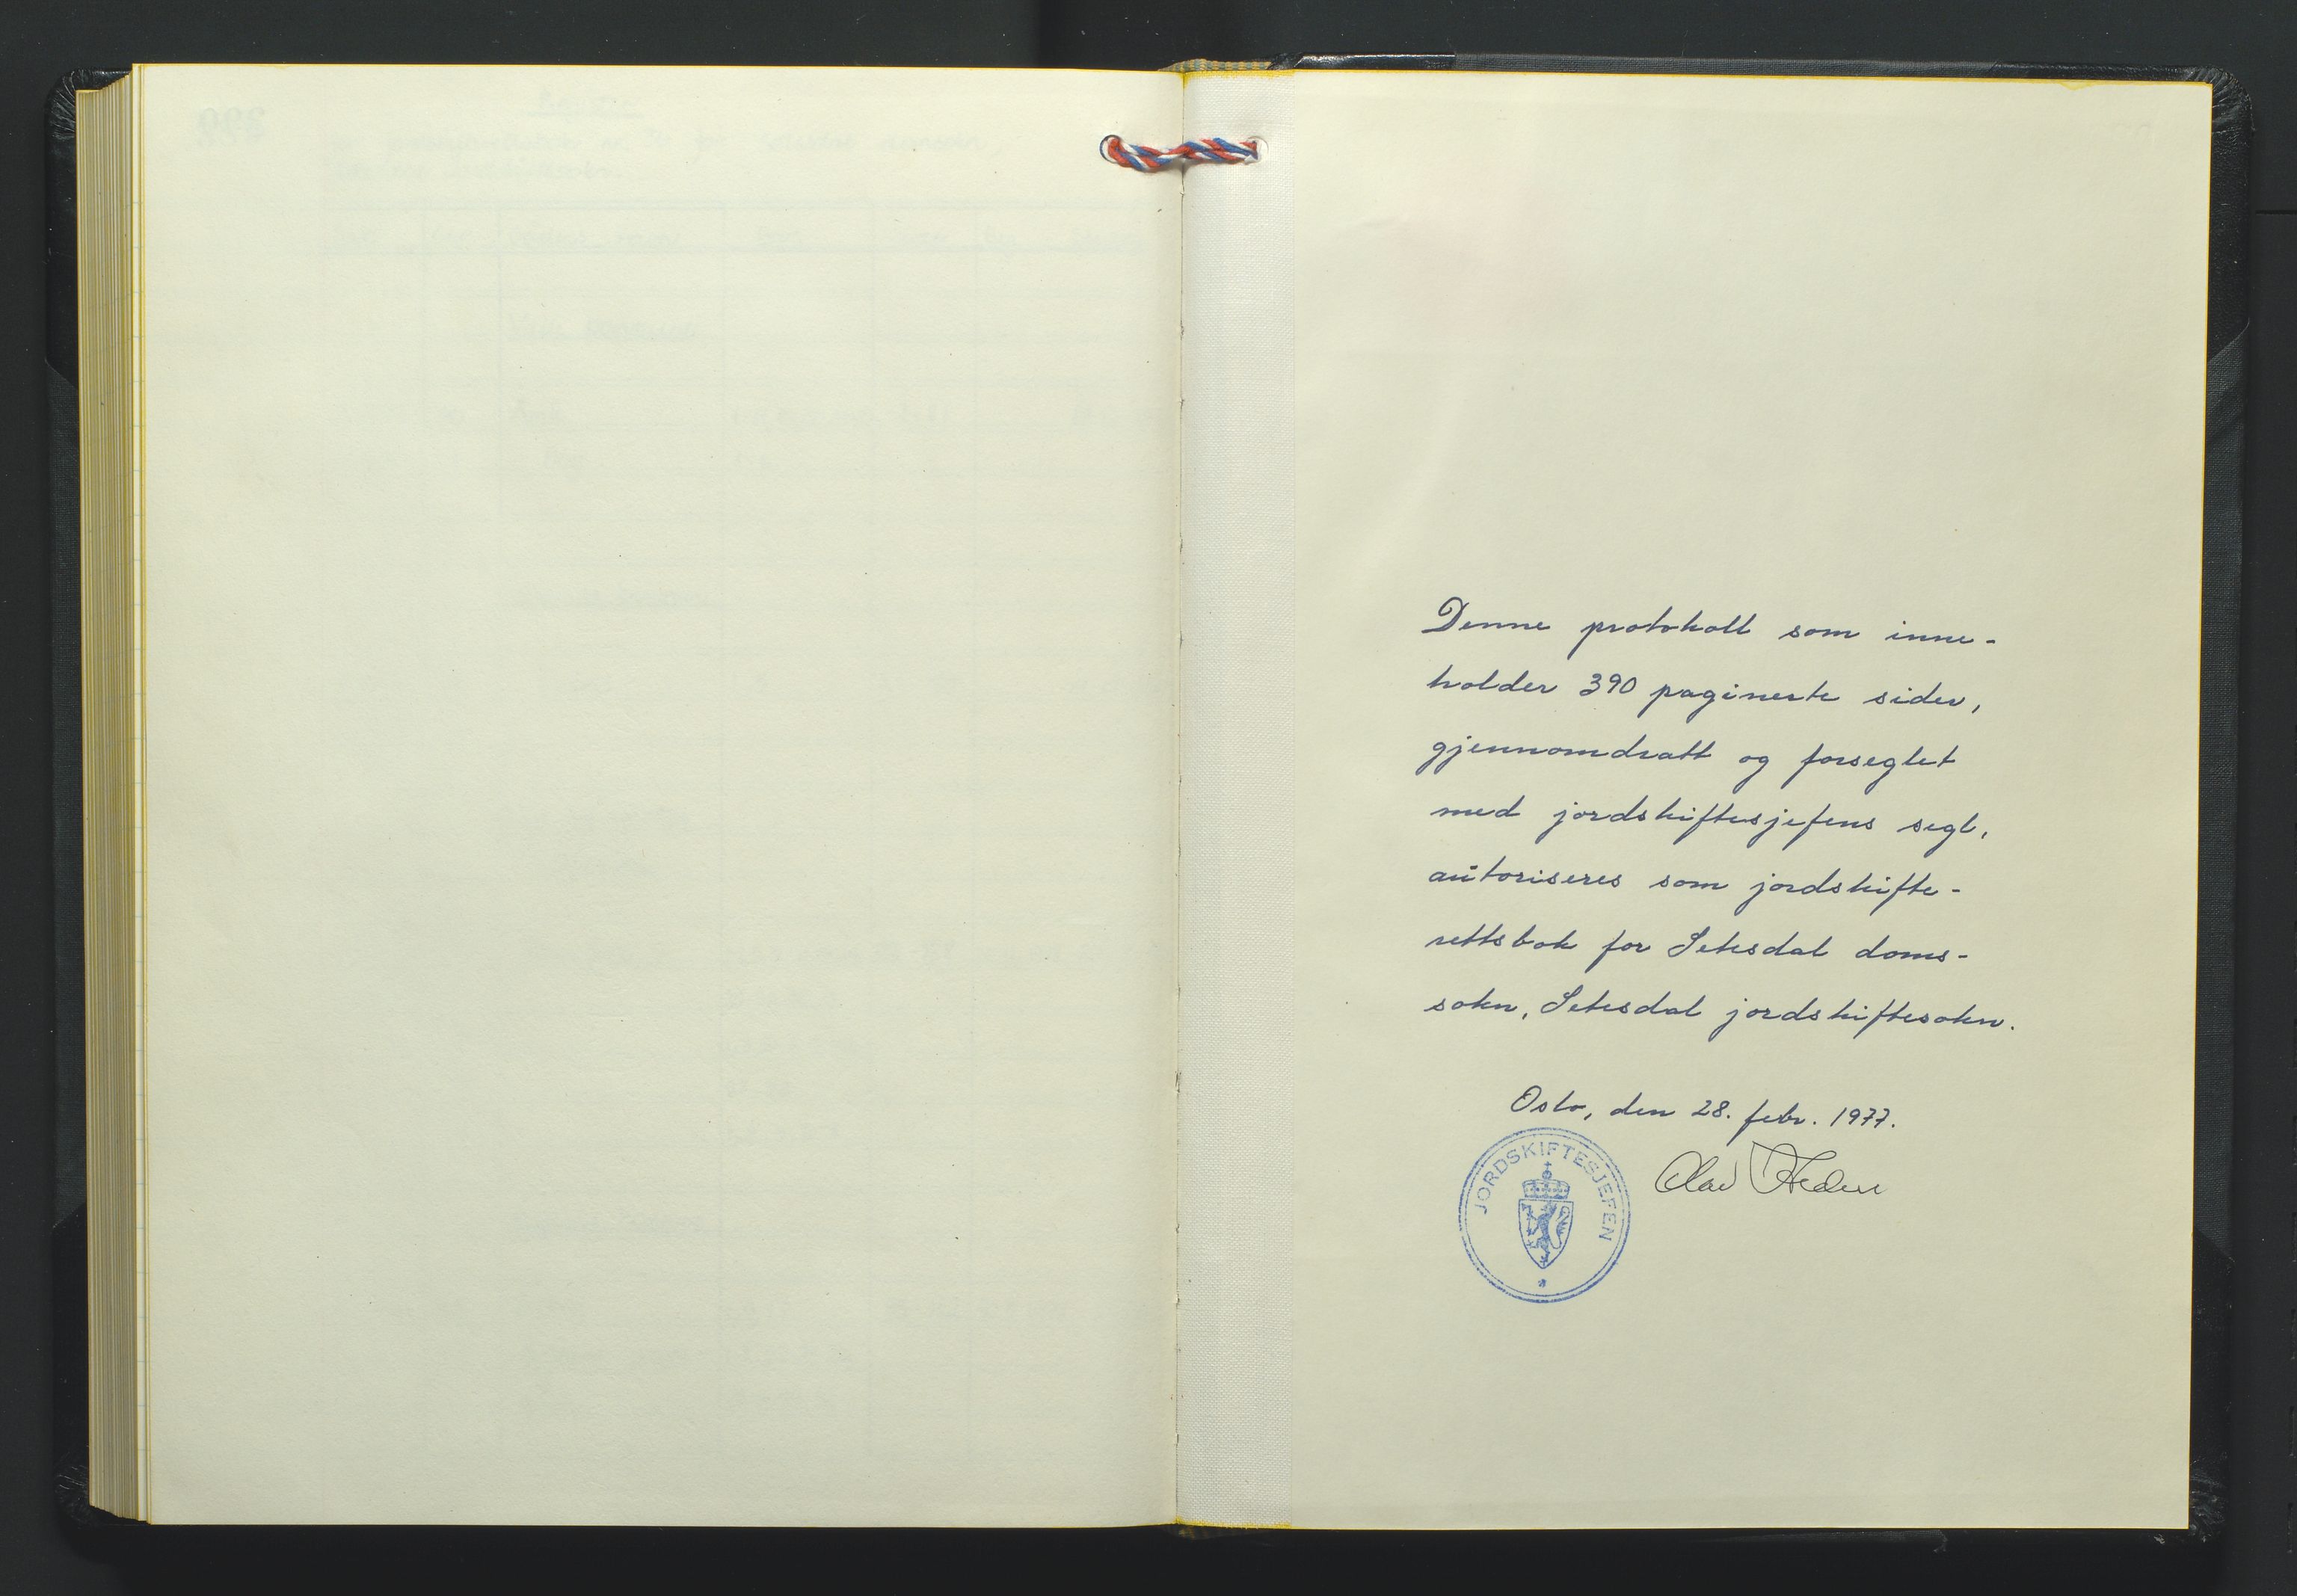 Denne protokoll som inne-
holder 390 paginerte sider,
gjennomdratt og forseglet
med jordskiftesjefens segl,
autoriseres som jordskifte-
rettsbok for Setesdal doms-
sokn, Setesdal jordskiftesokn.
Oslo, den 28. febr. 1977.
JORDSKIFTESJEFEN
Olav